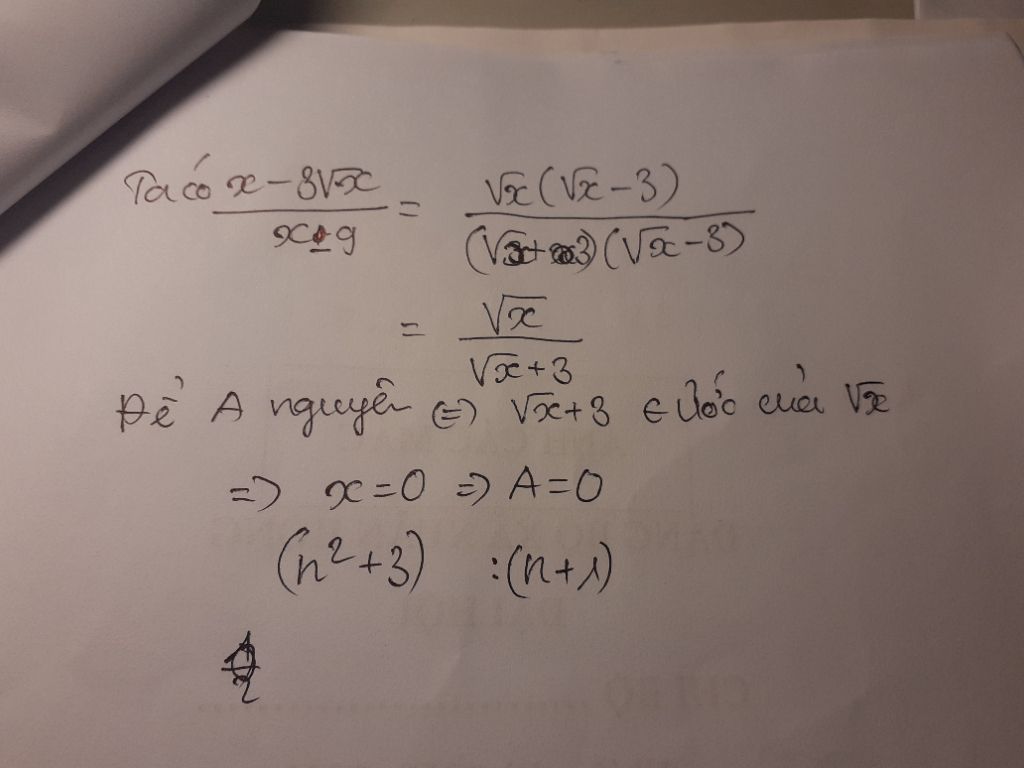 Ta có x-3√x / x-9 = √x(√x-3) / (√x+3)(√x-3)
= √x / √x+3
Để A nguyên (=) √x+3 ∈ Ước của √x
=> x=0 => A=0
(n²+3) :(n+1)